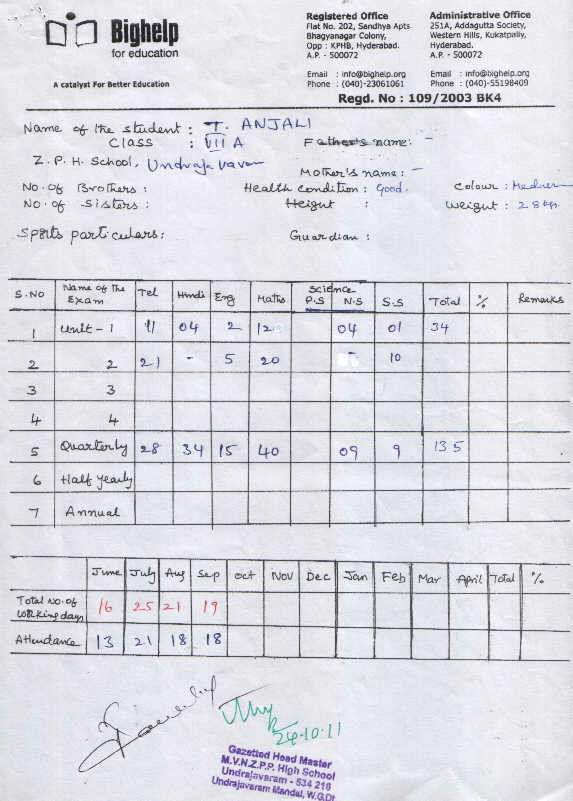 Bighelp
for education
A catalyst For Better Education
Registered Office
Flat No. 202, Sandhya Apts
Bhagyanagar Colony,
Opp : KPHB, Hyderabad.
A.P. - 500072
Email : info@bighelp.org
Phone : (040)-23061061
Administrative Office
251A, Addagutta Society,
Western Hills, Kukatpally,
Hyderabad.
A.P. - 500072
Email : info@bighelp.org
Phone : (040)-55198409
Regd. No : 109/2003 BK4
Name of the student : T. ANJALI
Class : VIII A Father's name: -
Z. P. H. School, Undrajavaram
Mother's name: -
No. of Brothers : Health condition : Good. Colour : Medium
No. of Sisters : Height : Weight :
Sports particulars: Guardian :
S.No Name of the Exam Tel Hindi Eng Maths Science P.S N.S S.S Total % Remarks
1 Unit - 1 11 04 2 12 04 01 34
2 2 21 - 5 20 - 10
3 3
4 4
5 Quarterly 28 34 15 40 09 9 135
6 Half yearly
7 Annual
June July Aug Sep Oct Nov Dec Jan Feb Mar April Total %
Total No. of working days 16 25 21 19
Attendance 13 21 18 18
24-10-11
Gazetted Head Master
M.V.N.Z.P.P. High School
Undrajavaram - 534 216
Undrajavaram Mandal, W.G.Dt